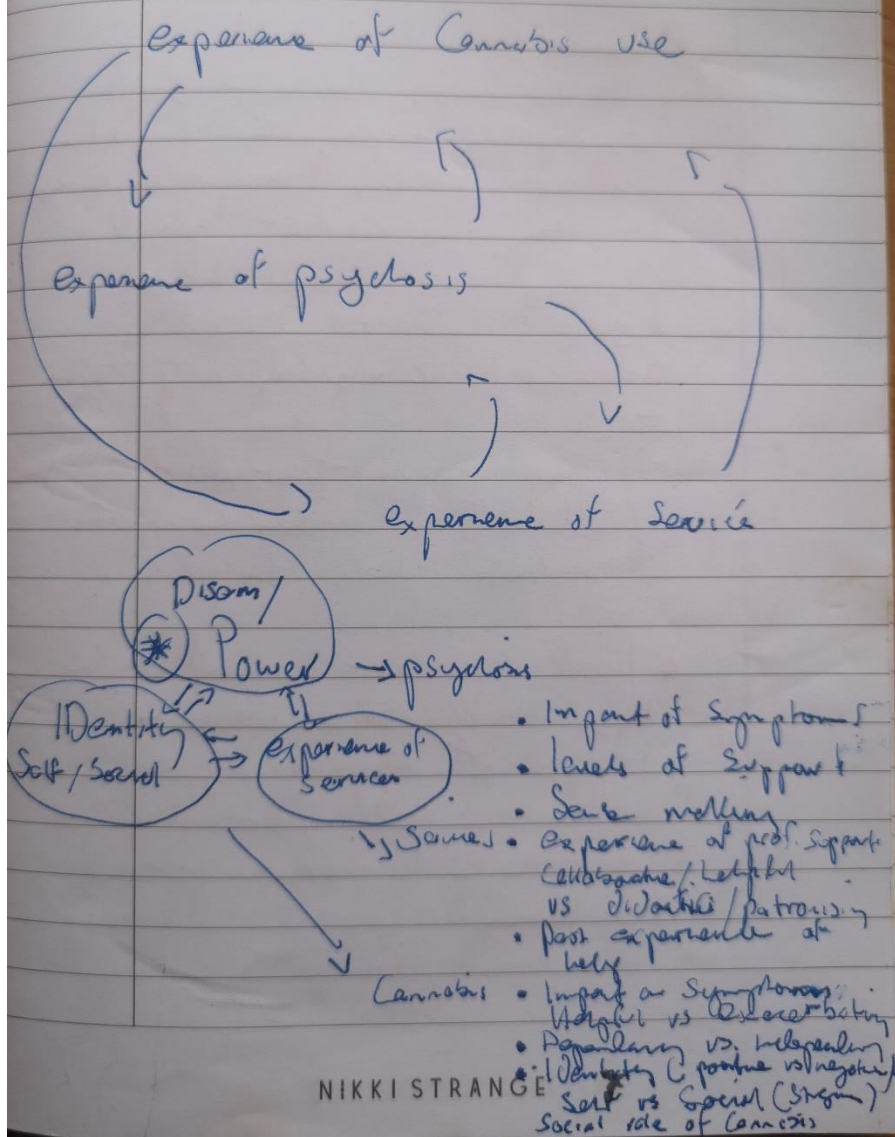 experience of Cannabis use
experience of psychosis
experience of Service
Disem/
Power
→ psychosis
IDentity
Self / Social
experience of
services
• Impact of Symptoms
• levels of Support
• Sense making
↳ Services • experience of prof. support
Collaborative / helpful
vs didactic / patronising
• past experience of
help
Cannabis • Impact on Symptoms
Helpful vs exacerbating
• Dependency vs. independency
• IDentity (positive vs negative)
Self vs Social (Stigma)
Social role of Cannabis
NIKKI STRANGE